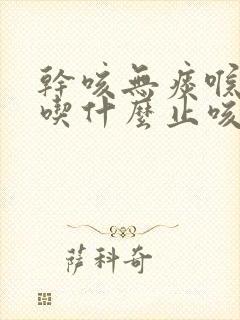 幹咳無痰喉
喫什麼止咳
薩科奇